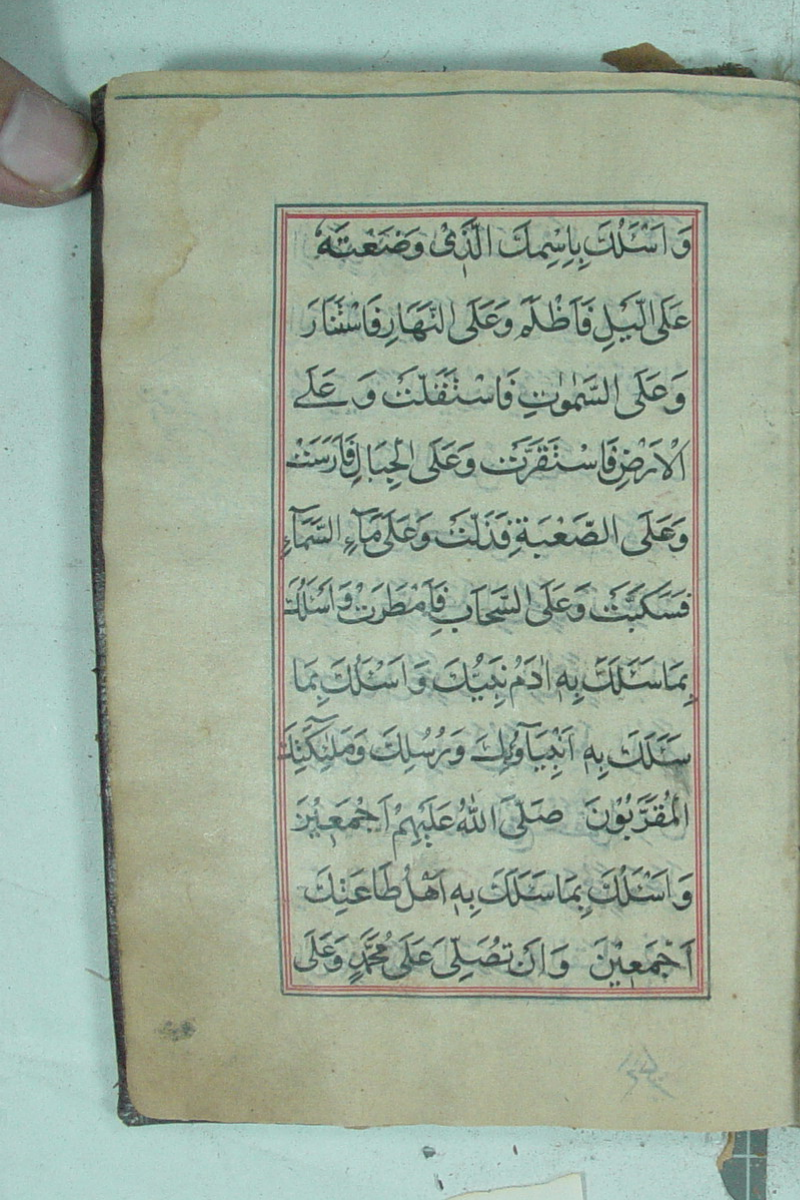 وَ اَسْئَلُكَ بِاِسْمِكَ الَّذِىْ وَضَعْتَهٗ
عَلَى الَّيْلِ فَاَظْلَمَ وَعَلَى النَّهَارِ فَاسْتَنَارَ
وَعَلَى السَّمٰوٰتِ فَاسْتَقَلَّتْ وَ عَلَے
الْاَرْضِ فَاسْتَقَرَّتْ وَعَلَى الْجِبَالِ فَاَرَسَتْ
وَعَلَى الصَّعْبَةِ فَذَلَّتْ وَعَلَى مَآءِ السَّمَآءِ
فَسَكَبَتْ وَعَلَى السَّحَابِ فَاَمْطَرَتْ وَاَسْئَلُكَ
بِمَا سَئَلَكَ بِهٖ اٰدَمُ نَبِيُّكَ وَ اَسْئَلُكَ بِمَا
سَئَلَكَ بِهٖ اَنْبِيَآؤُكَ وَرُسُلِكَ وَمَلٰئِكَتِكَ
الْمُقَرَّبُوْنَ صَلَّى اللّٰهُ عَلَيْهِمْ اَجْمَعِيْنَ
وَ اَسْئَلُكَ بِمَا سَئَلَكَ بِهٖ اَهْلُ طَاعَتِكَ
اَجْمَعِيْنَ وَ اَنْ تُصَلِّىَ عَلَى مُحَمَّدٍ وَعَلَى